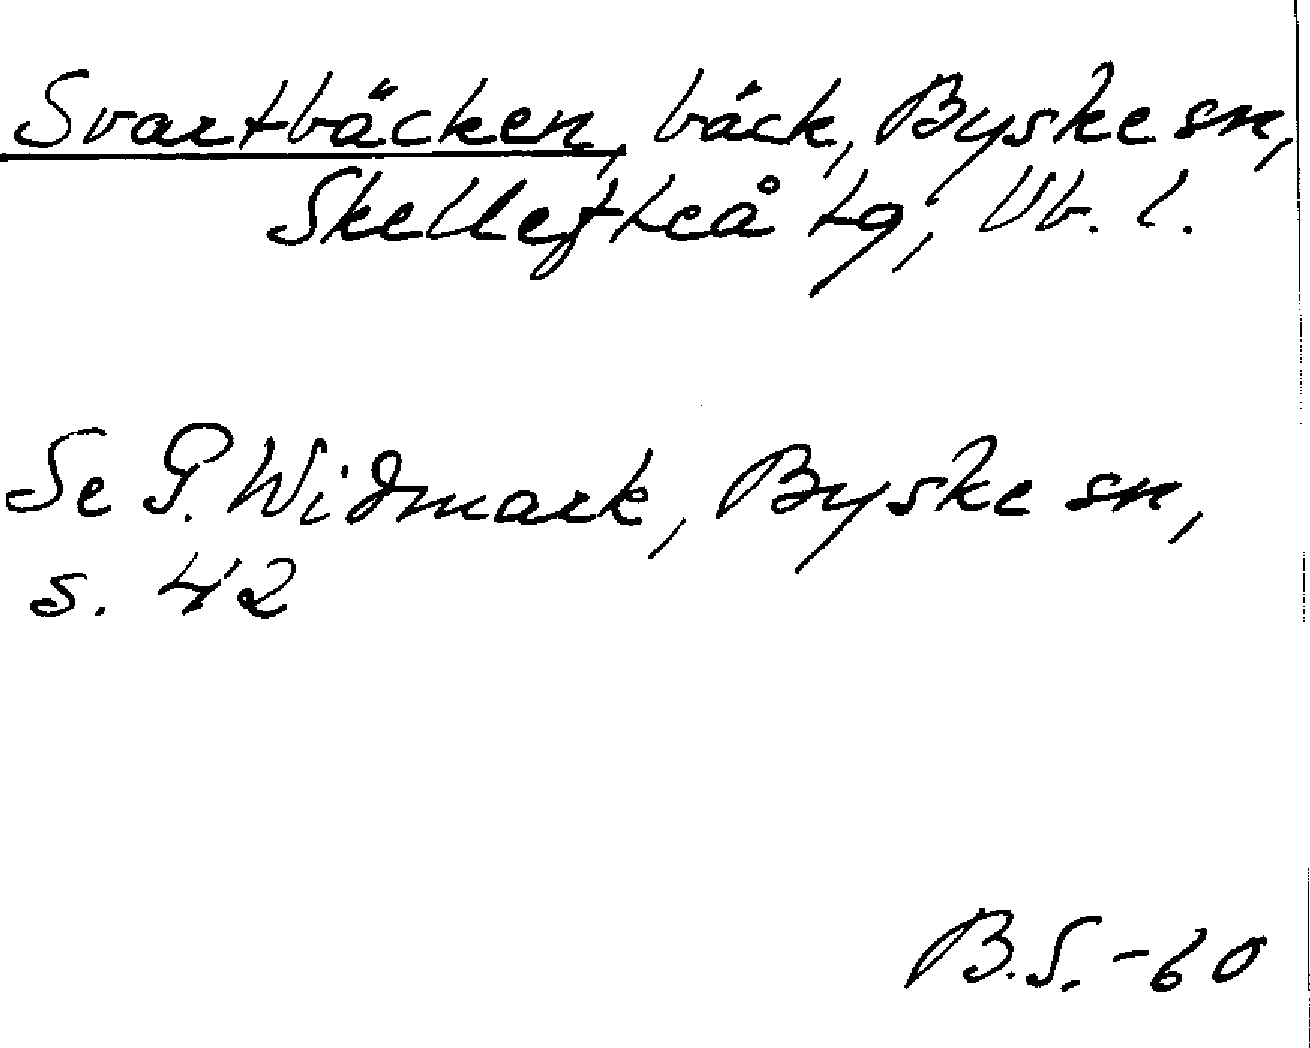 Svartbäcken, bäck, Byske sn,
Skellefteå tg; Vb. l.
Se G. Widmark, Byske sn,
s. 42
B.S. -60